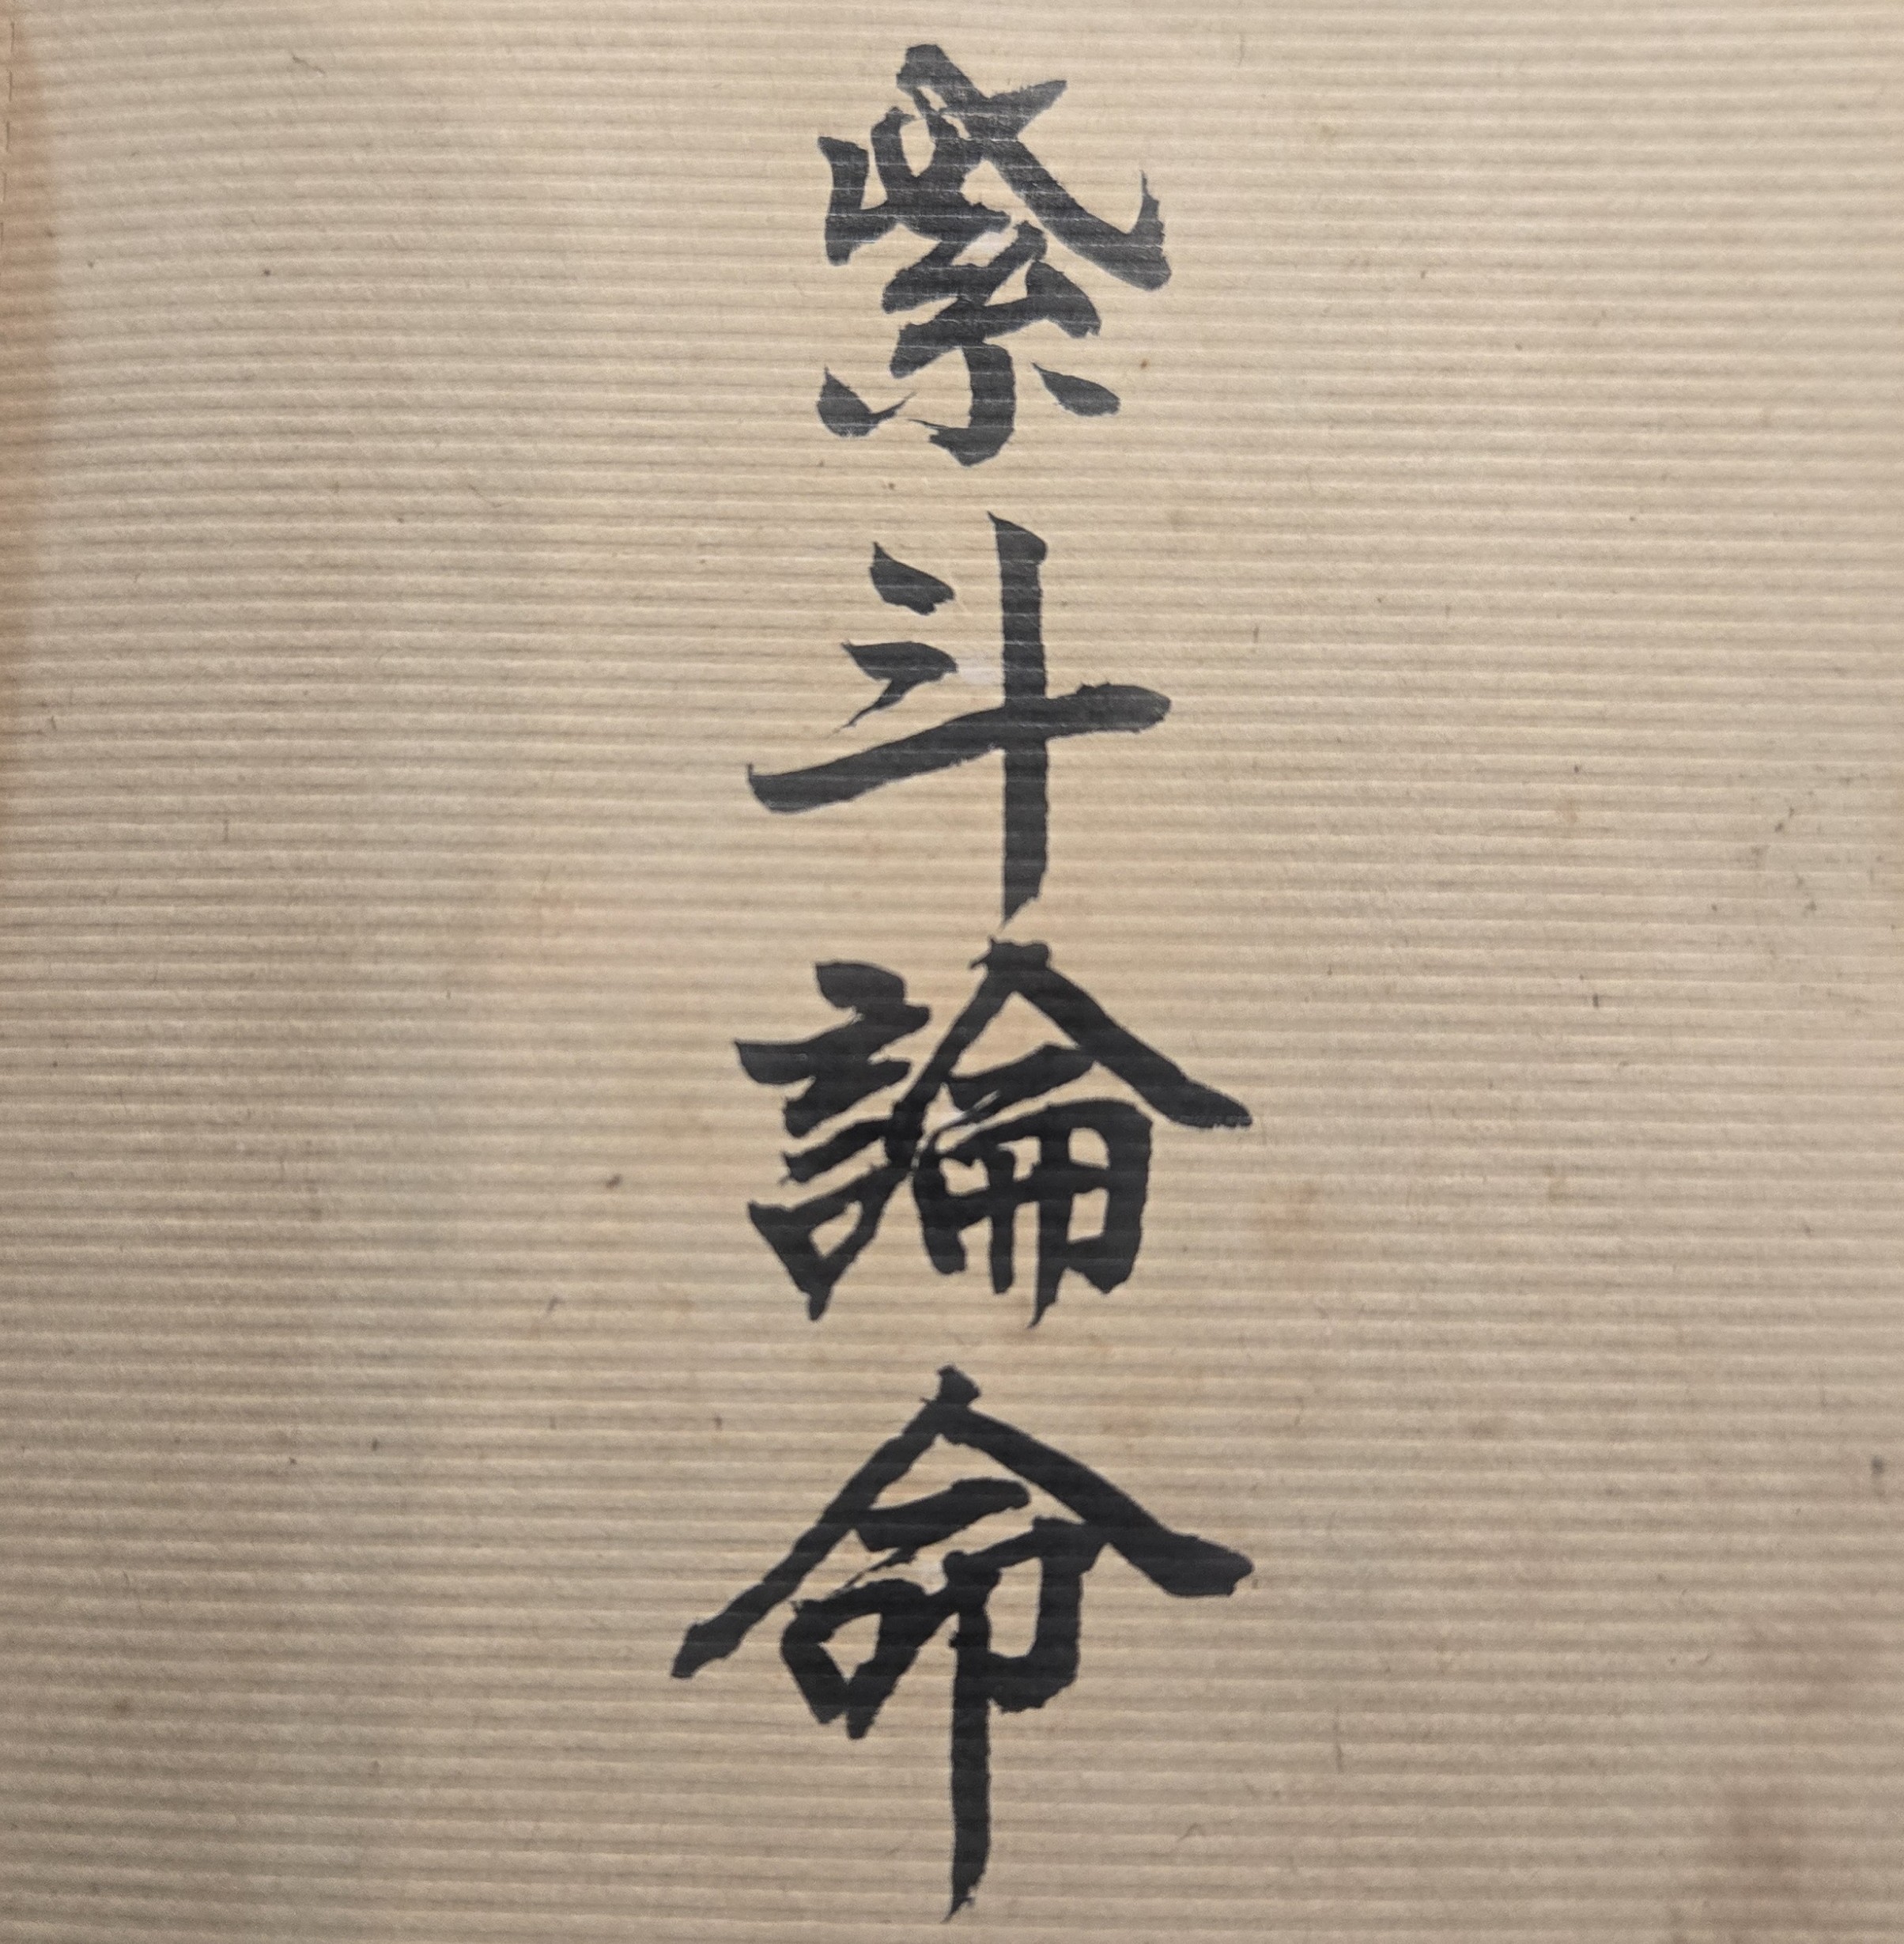 紫斗論命